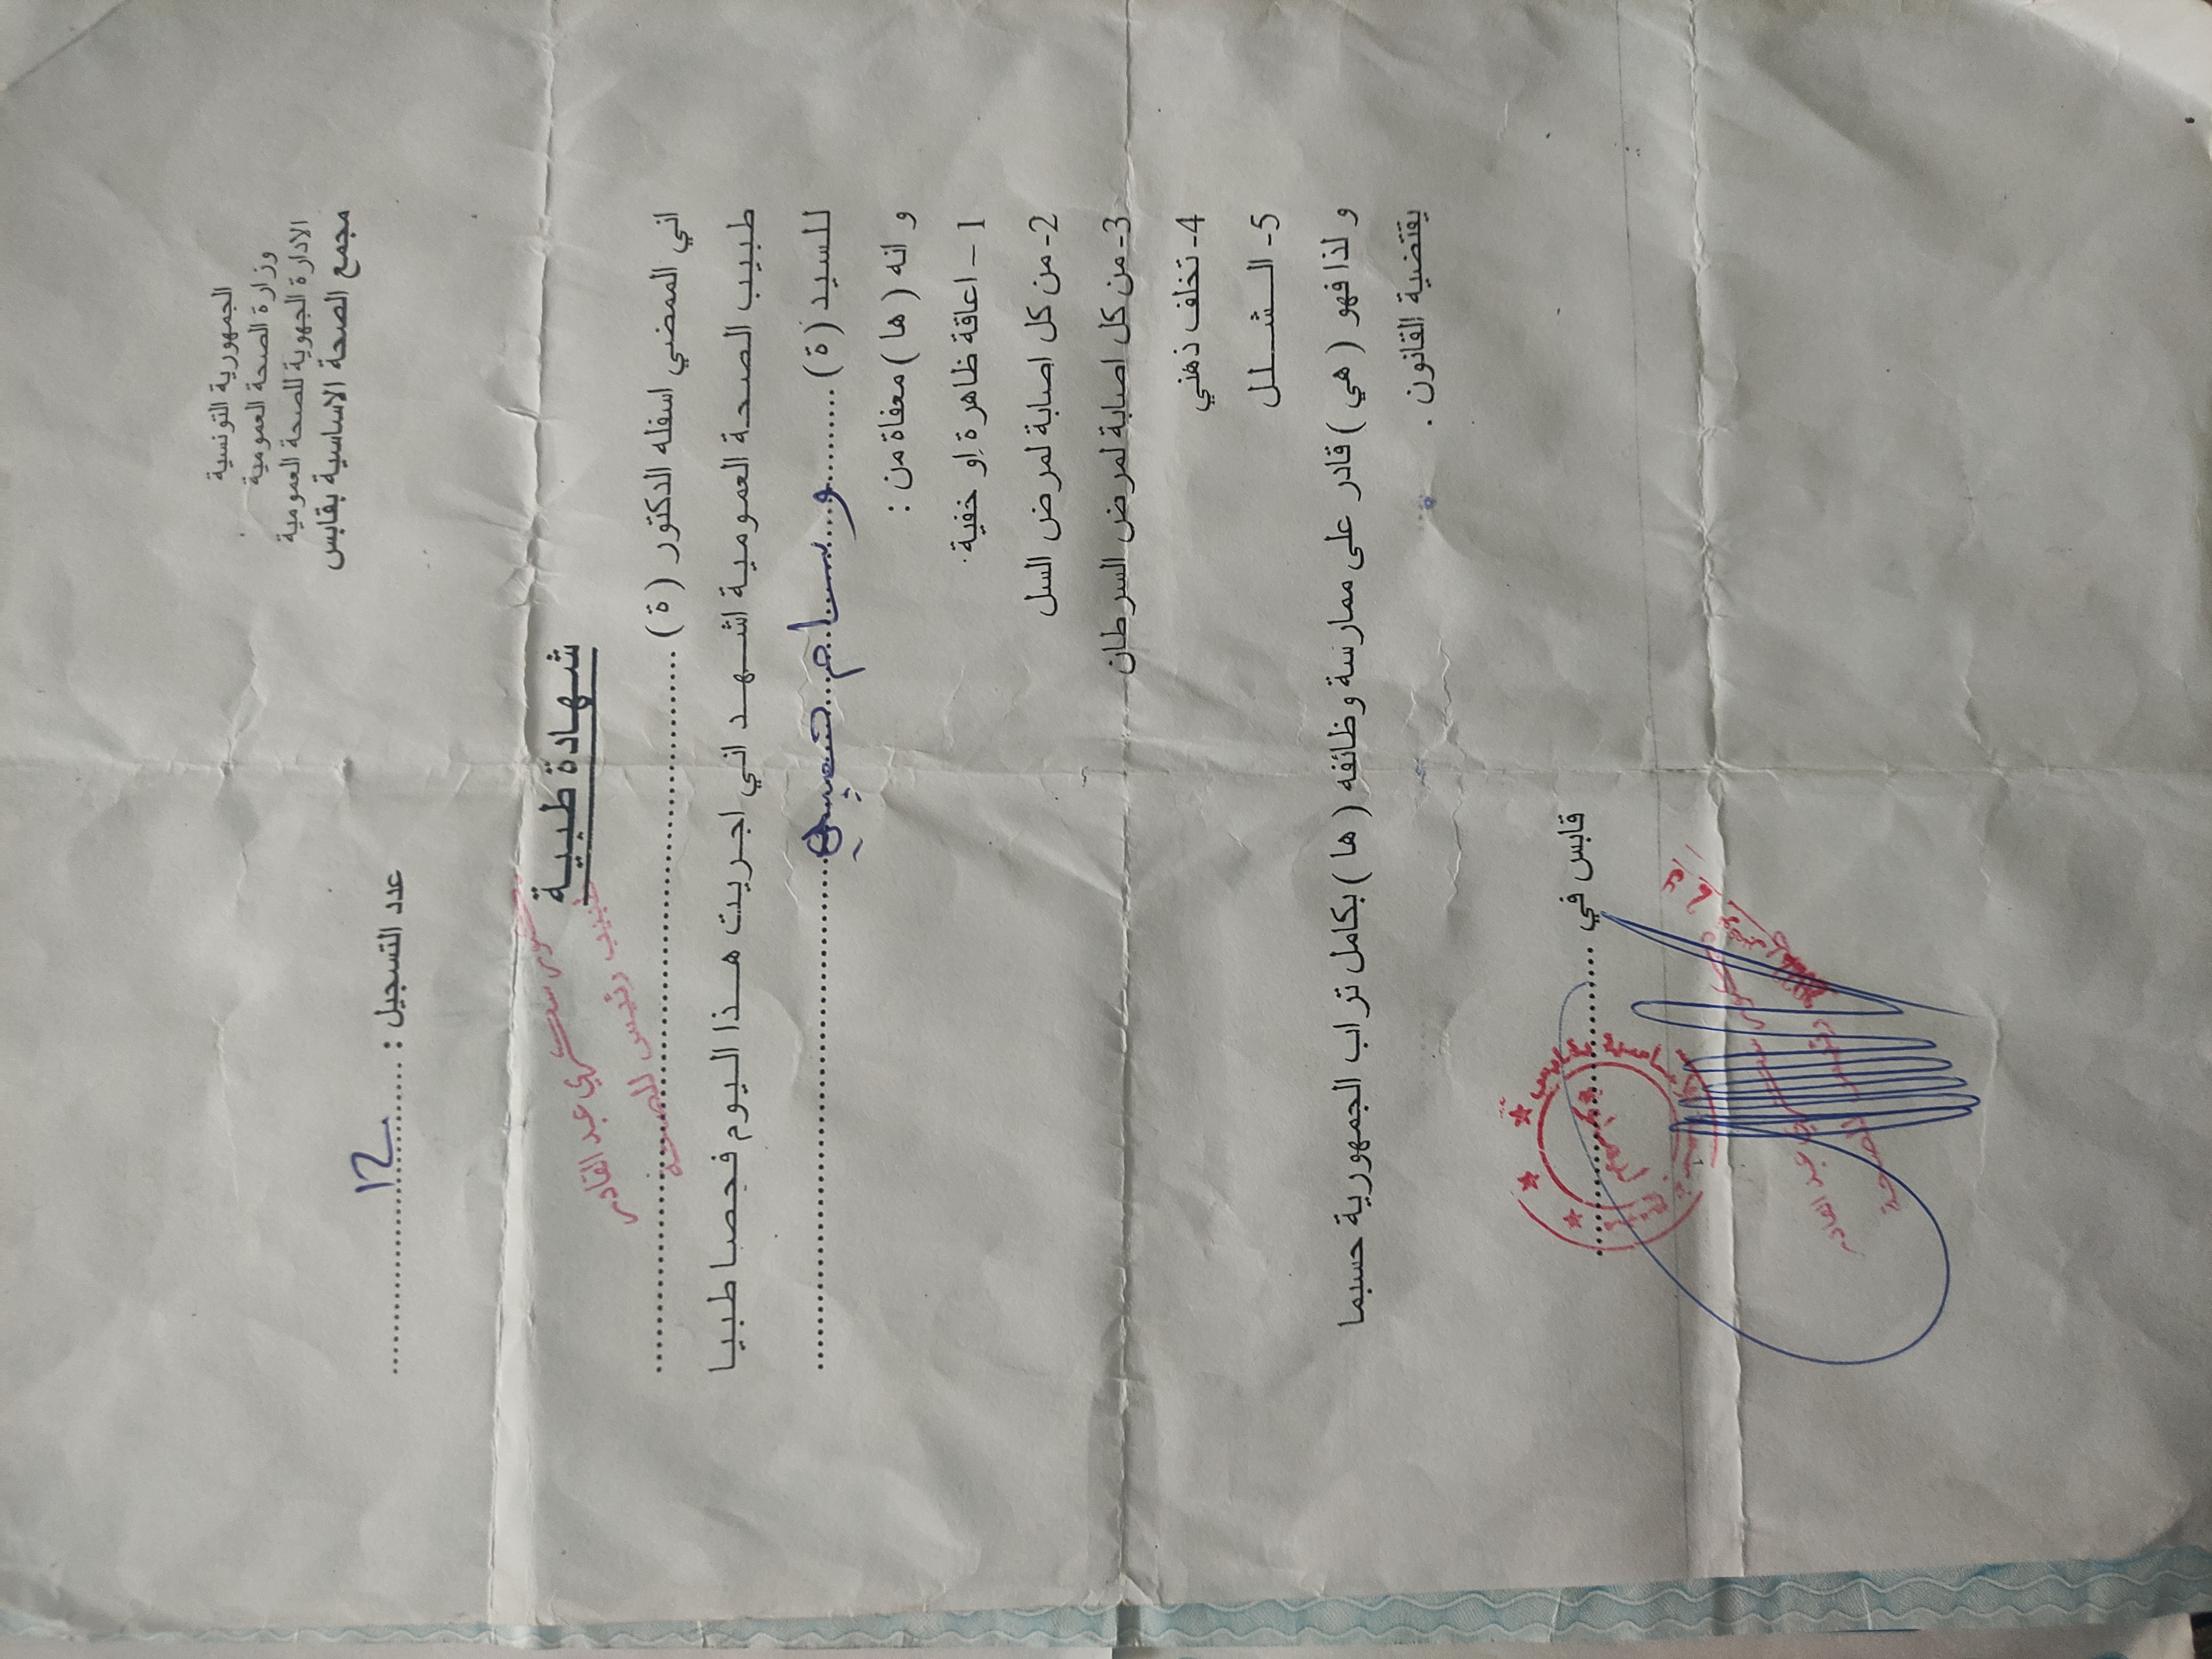 الجمهورية التونسية
وزارة الصحة العمومية
الادارة الجهوية للصحة العمومية
مجمع الصحة الاساسية بقابس
عدد التسجيل : ........12........
شهادة طبيـة
اني الممضي اسفله الدكتور ( ة ) ................................
عبد القادر
طبيب رئيس للصحة
طبيب الصحة العمومية اشهد اني اجريت هذا اليوم فحصا طبيا
للسيد ( ة ) ........ وسام ................................
و انه ( ها ) معفاة من :
1 – اعاقة ظاهرة او خفية.
2- من كل اصابة لمرض السل
3- من كل اصابة لمرض السرطان
4- تخلف ذهني
5- الـشـلـل
و لذا فهو ( هي ) قادر على ممارسة وظائفه ( ها ) بكامل تراب الجمهورية حسبما
يقتضية القانون .
قابس في ................................
عبد القادر
رئيس للصحة